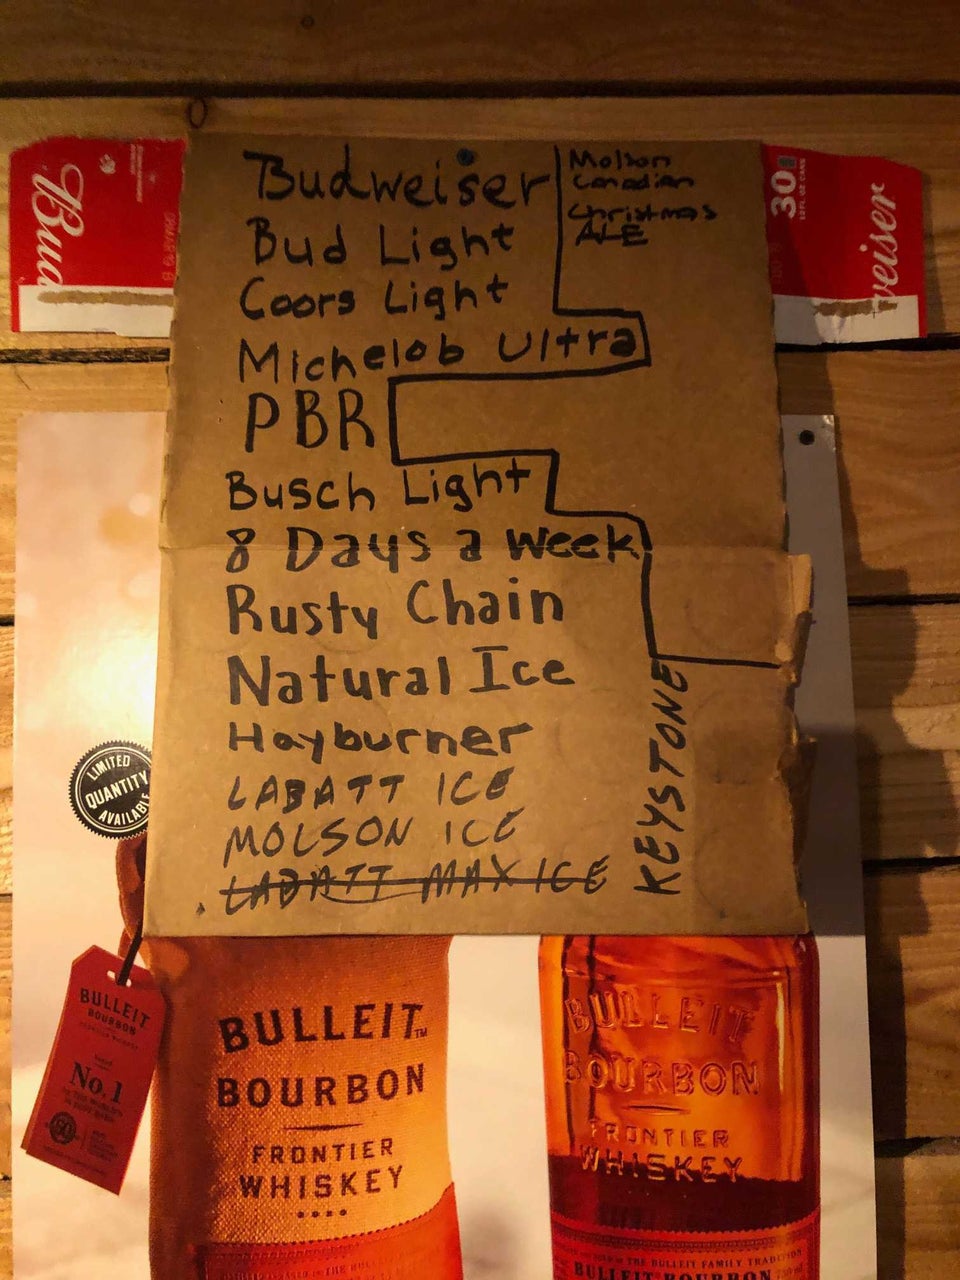 Budweiser
Bud Light
Coors Light
Michelob Ultra
PBR
Busch Light
8 Days a Week
Rusty Chain
Natural Ice
Hayburner
LABATT ICE
MOLSON ICE
LABATT MAX ICE
Molson
Canadian
Christmas
ALE
KEYSTONE
Bud
30
12 FL OZ CANS
weiser
LIMITED
QUANTITY
AVAILABLE
BULLEIT
BOURBON
No. 1
BULLEIT™
BOURBON
FRONTIER
WHISKEY
BULLEIT
BOURBON
FRONTIER
WHISKEY
BULLEIT FAMILY TRADITION
BULLEIT BOURBON